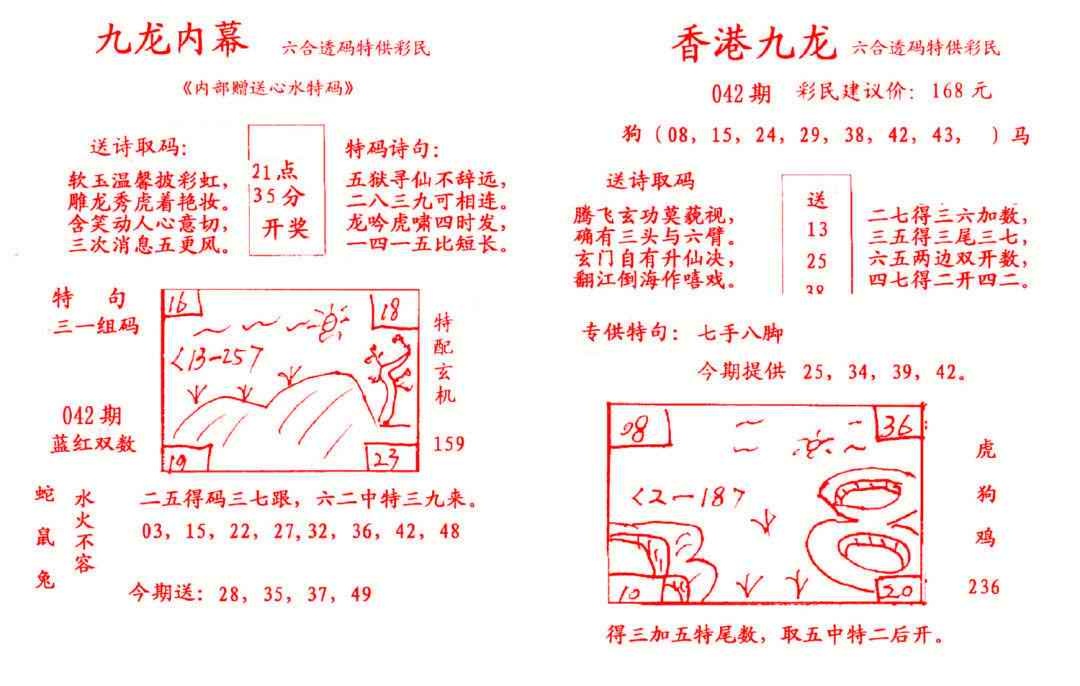 九龙内幕 六合透码特供彩民
《内部赠送心水特码》
送诗取码:
软玉温馨披彩虹,
雕龙秀虎着艳妆。
含笑动人心意切,
三次消息五更风。
21点
35分
开奖
特码诗句:
五狱寻仙不辞远,
二八三九可相连。
龙吟虎啸四时发,
一四一五比短长。
特 句
三一组码
042期
蓝红双数
16
18
<13-25>
19
23
特配玄机
159
蛇鼠兔
水火不容
二五得码三七跟, 六二中特三九来。
03, 15, 22, 27, 32, 36, 42, 48
今期送: 28, 35, 37, 49
香港九龙 六合透码特供彩民
042期 彩民建议价: 168元
狗 (08, 15, 24, 29, 38, 42, 43, ) 马
送诗取码
腾飞玄功莫藐视,
确有三头与六臂。
玄门自有升仙决,
翻江倒海作嘻戏。
送
13
25
38
二七得三六加数,
三五得三尾三七,
六五两边双开数,
四七得二开四二。
专供特句: 七手八脚
今期提供 25, 34, 39, 42。
08
36
<2-18>
10
20
虎
狗
鸡
236
得三加五特尾数, 取五中特二后开。